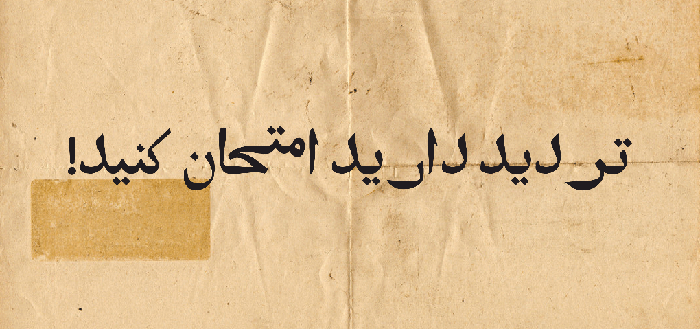 تردید دارید امتحان کنید!